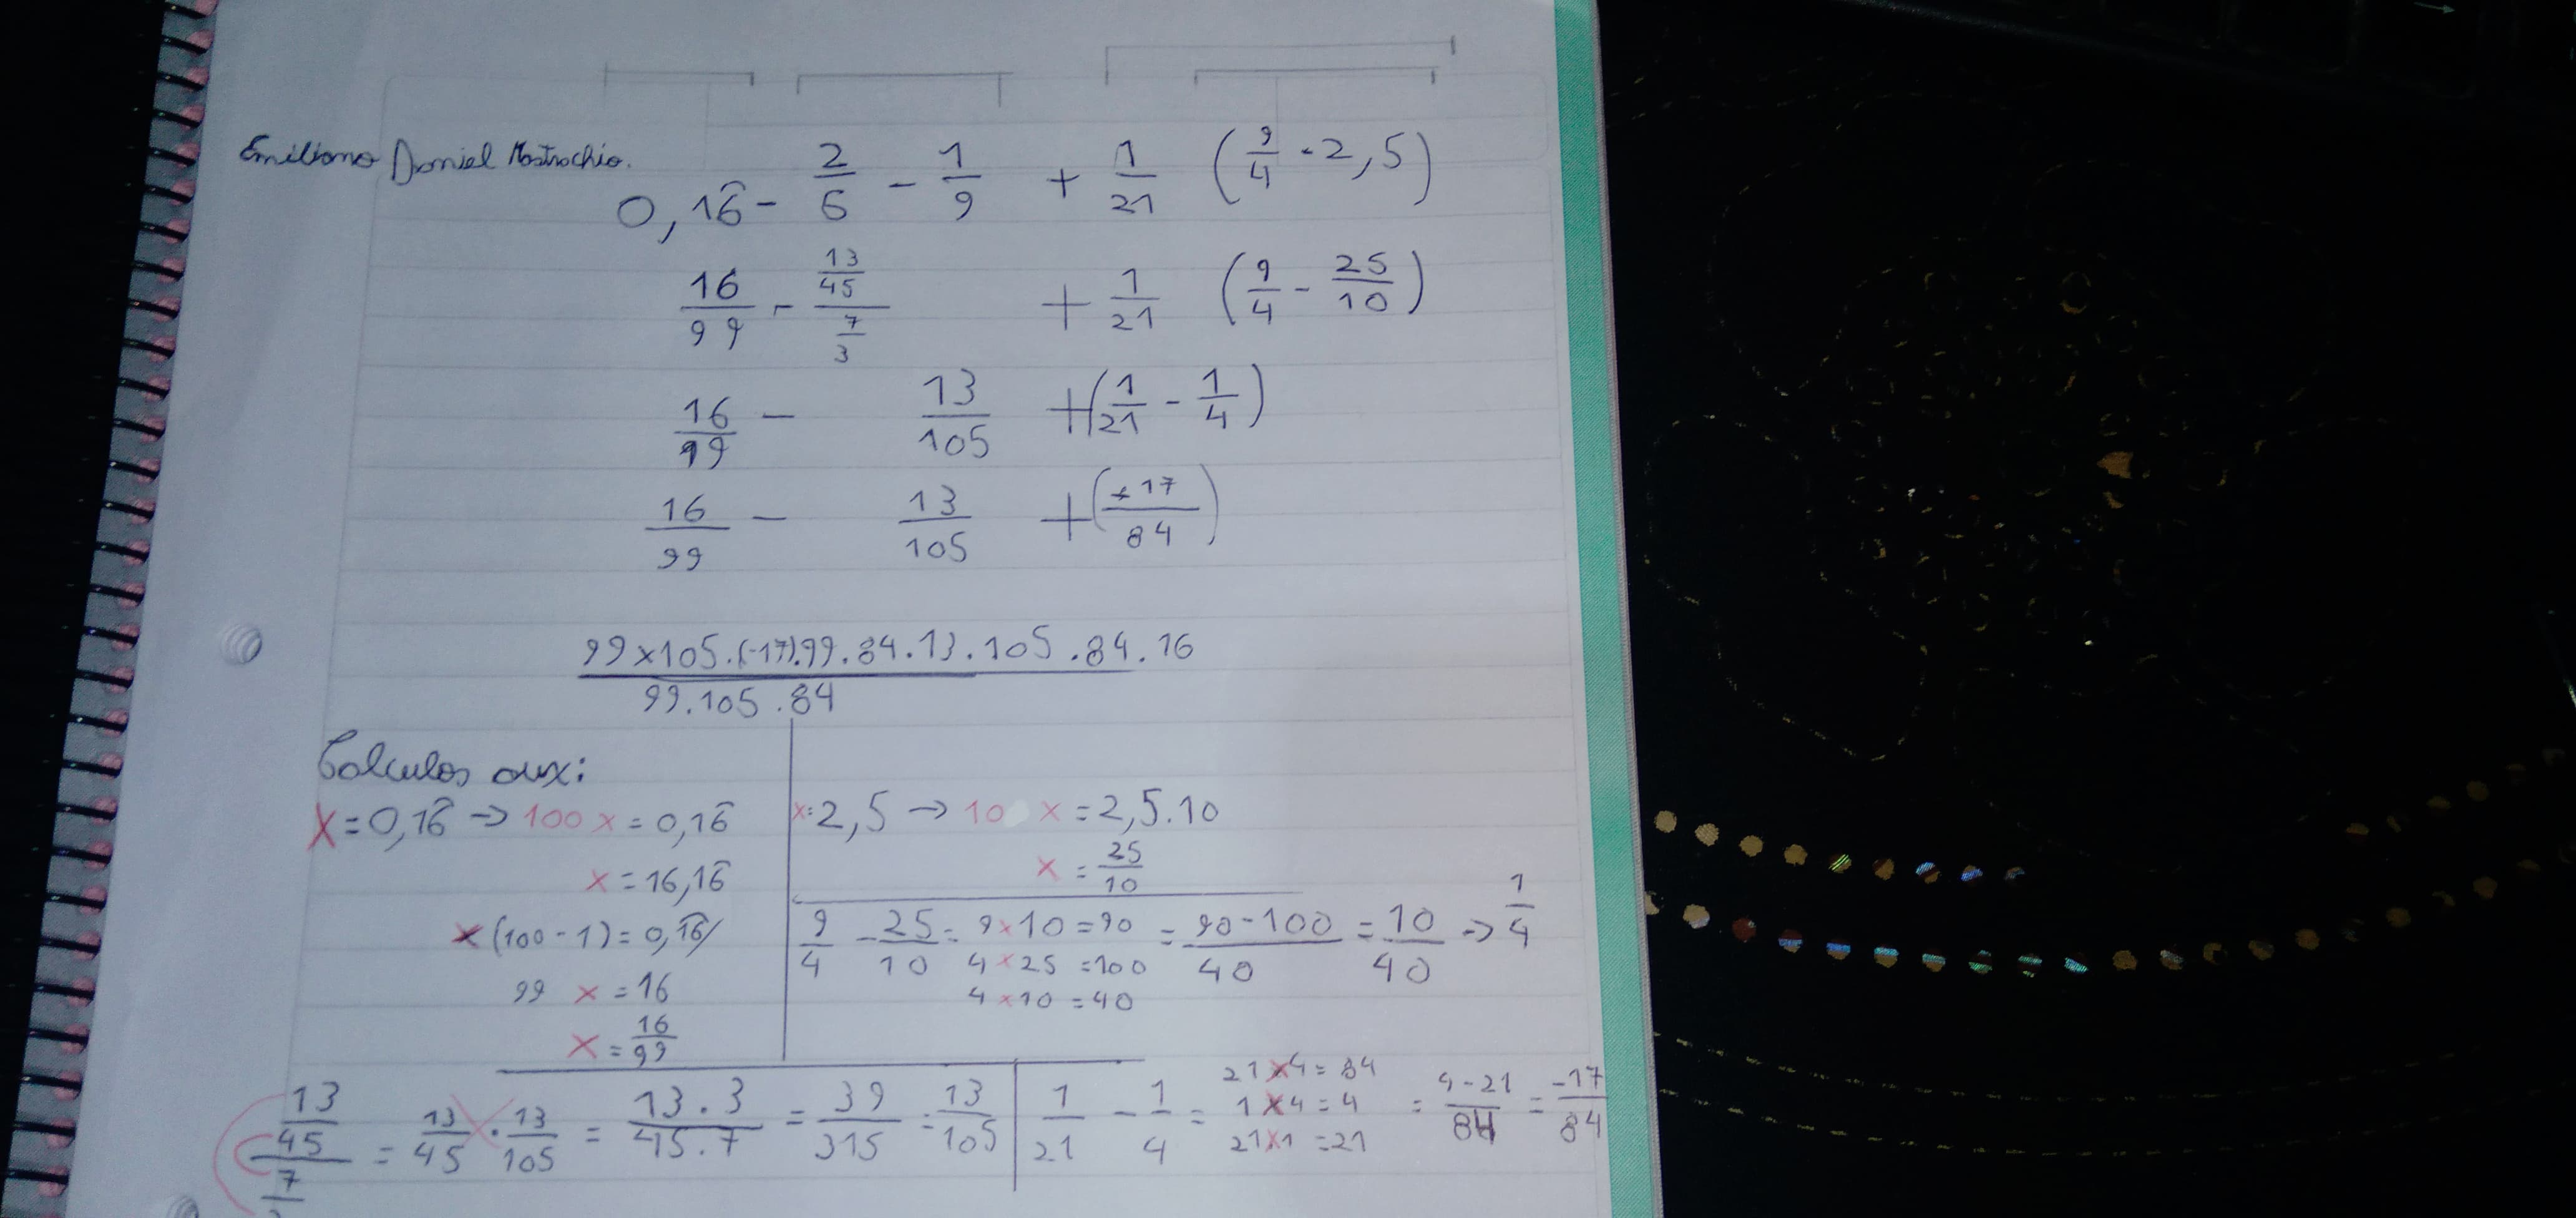 Emiliano Daniel
0,16̂ - 2/5 - 1/9 + 1/21 (9/4 - 2,5)
16/99 - (13/45)/(7/3) + 1/21 (9/4 - 25/10)
16/99 - 13/105 + (1/21 - 1/4)
16/99 - 13/105 + (-17/84)
99x105.(-17).99.84.13.105.84.16
99.105.84
Calculos aux:
X=0,16̂ → 100 x = 0,16̂
x = 16,16̂
x (100 - 1) = 0,16̂/
99 x = 16
x = 16/99
x=2,5 → 10 x = 2,5.10
x = 25/10
9/4 - 25/10 = 9x10=90 = (90-100)/40 = 10/40 → 1/4
4x25=100
4x10=40
(13/45)/(7/ = 13/45 . 13/105 = (13.3)/(45.7) = 39/315 = 13/105
1/21 - 1/4 = 21x4=84 = (4-21)/84 = -17/84
1x4=4
21x1=21